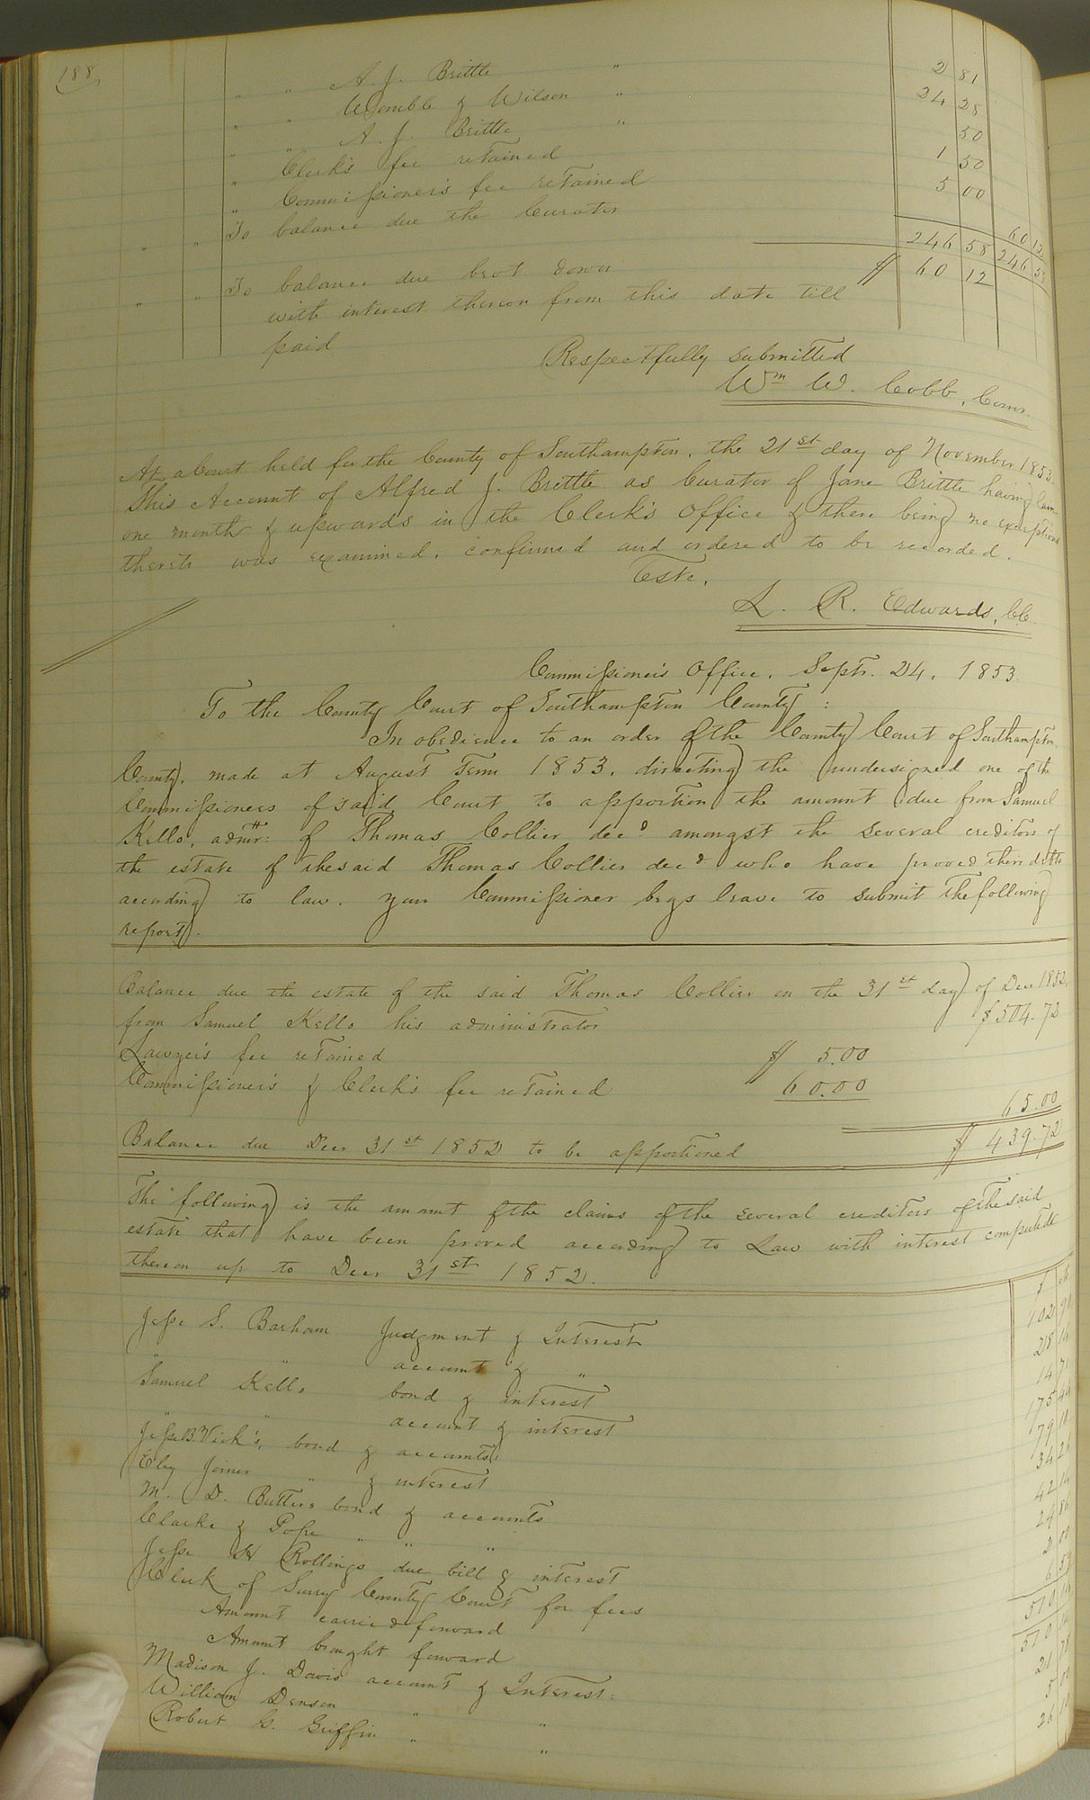 188,
" " A. J. Brittle " 2 81
" " Womble & Wilson " 24 28
" " A. J. Brittle " 50
" Clerk's fee retained 1 50
" Commissioner's fee retained 5 00
" " To balance due the Curator 60 12
246 58 246 58
" " To balance due brot down $ 60 12
with interest thereon from this date till
paid
Respectfully submitted
Wm W. Cobb, Comr.
At a Court held for the County of Southampton, the 21st day of November 1853.
This Account of Alfred J. Brittle as Curator of Jane Brittle having lain
one month & upwards in the Clerk's Office & there being no exceptions
thereto was examined, confirmed and ordered to be recorded.
Teste,
L. R. Edwards, CC.
Commissioner's Office, Septr. 24, 1853.
To the County Court of Southampton County:
In obedience to an order of the County Court of Southampton
County, made at August Term 1853, directing the undersigned one of the
Commissioners of said Court to apportion the amount due from Samuel
Kello, admr: of Thomas Collier decd amongst the several creditors of
the estate of the said Thomas Collier decd who have proved their debts
according to law. Your Commissioner begs leave to submit the following
report.
Balance due the estate of the said Thomas Collier on the 31st day of Decr 1852,
from Samuel Kello his administrator $504.72
Lawyer's fee retained $ 5.00
Commissioner's & Clerk's fee retained 60.00 65.00
Balance due Decr 31st 1852 to be apportioned $ 439.72
The following is the amount of the claims of the several creditors of the said
estate that have been proved according to Law with interest computed
thereon up to Decr 31st 1852.
Jesse S. Barham Judgment & Interest
" " account & "
Samuel Kello bond & interest
" " account & interest
Jesse B Vick's, bond & accounts
Eley Joiner " & interest
M. D. Butts bond & accounts
Clarke & Pope " " "
Jesse Rollings due bill & interest
Clerk of Surry County Court for fees
Amount carried forward
Amount brought forward
Madison J. Davis account & Interest
William Denson " "
Robert G. Griffin " "